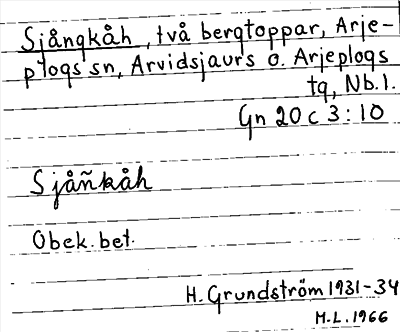 Sjångkåh, två bergtoppar, Arje-
plogs sn, Arvidsjaurs o. Arjeplogs
tg, Nb.l.
Gn 20 c 3:10
Sjåñkåh
Obek. bet.
H. Grundström 1931-34
M.L. 1966